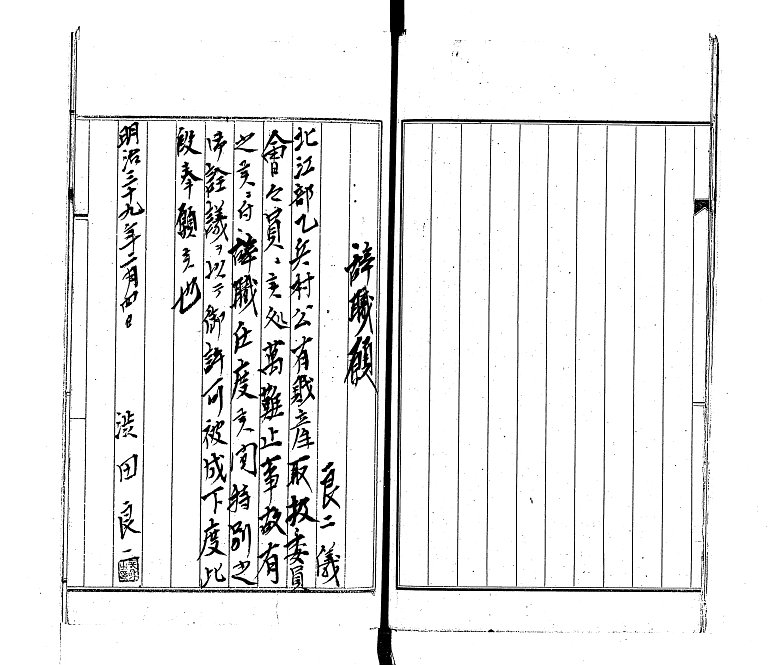 辞職願
良二儀
北江部乙兵村公有財産取扱委員
會々員ニ候処萬難止事故有
之候ニ付辞職仕度候間特別之
御詮議ヲ以テ御許可被成下度此
段奉願候也
明治三十九年二月四日
澁田良二